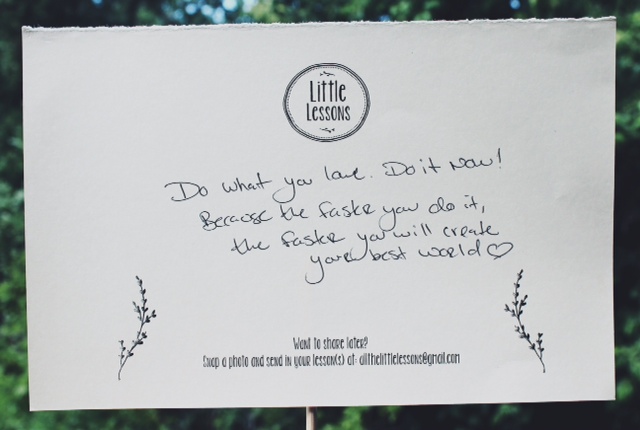 Little
Lessons
Do what you love. Do it now!
Because the faster you do it,
the faster you will create
your best world ♡
Want to share later?
Snap a photo and send in your lesson(s) at: allthelittlelessons@gmail.com